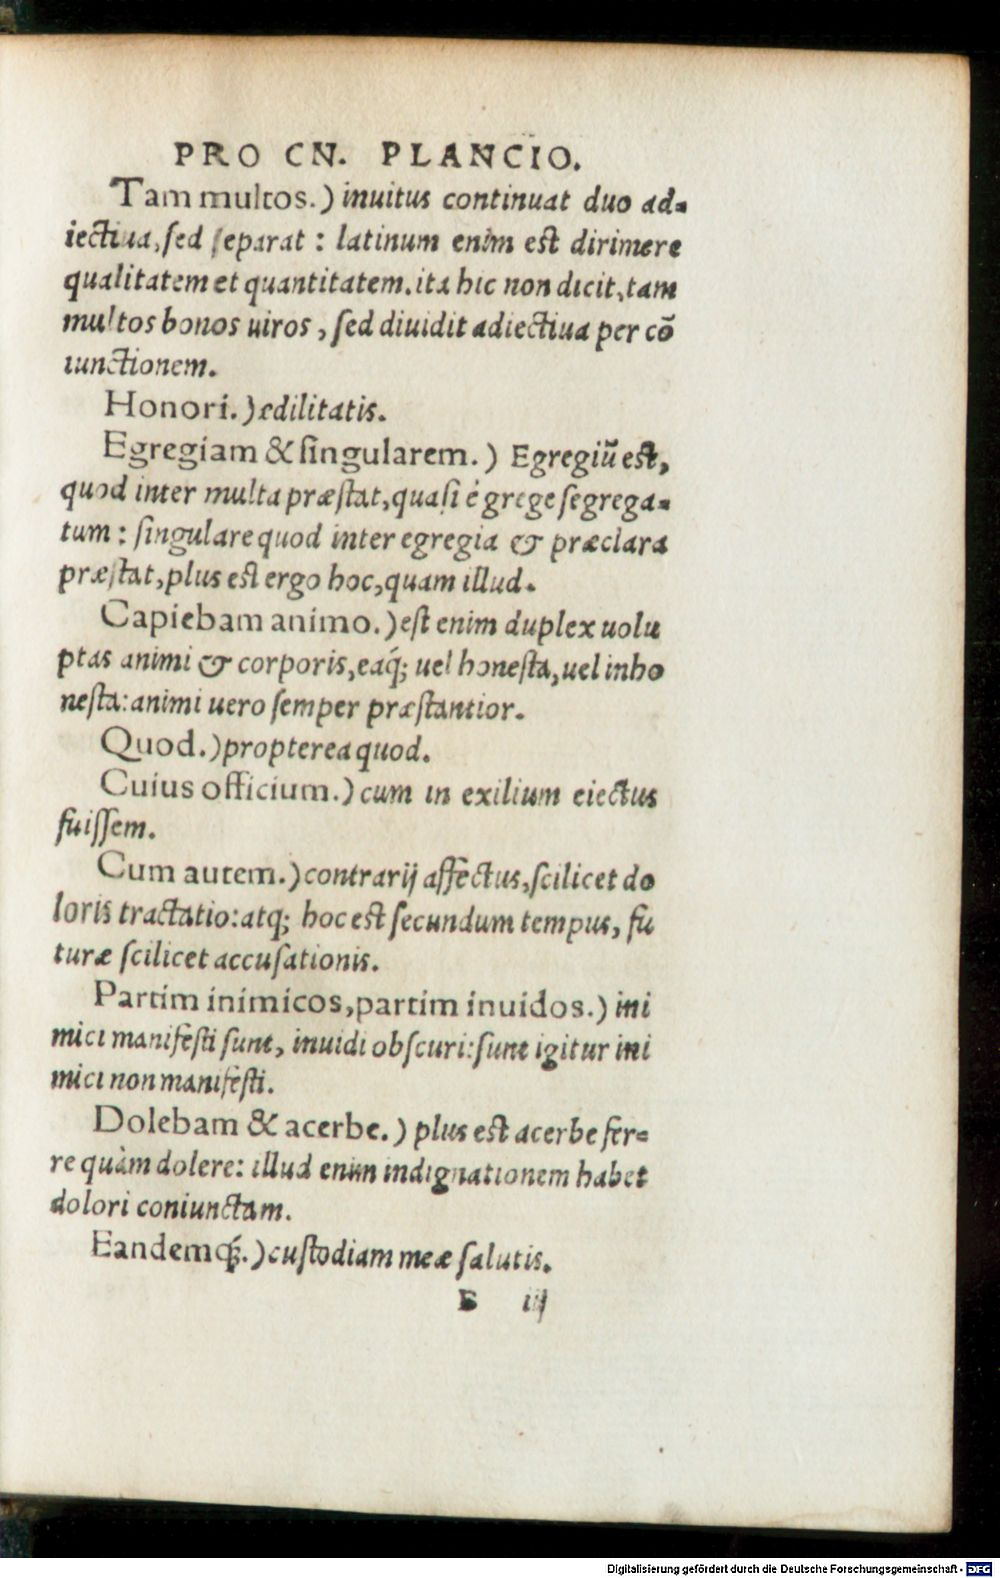 PRO CN. PLANCIO.
Tam multos.) inuitus continuat duo ad-
iectiua, sed separat : latinum enim est dirimere
qualitatem et quantitatem. ita hic non dicit, tam
multos bonos uiros, sed diuidit adiectiua per cõ
iunctionem.
Honori.) ædilitatis.
Egregiam & singularem.) Egregiũ est,
quod inter multa præstat, quasi è grege segrega-
tum : singulare quod inter egregia & præclara
præstat, plus est ergo hoc, quam illud.
Capiebam animo.) est enim duplex uolu
ptas animi & corporis, eaq́; uel honesta, uel inho
nesta: animi uero semper præstantior.
Quod.) propterea quod.
Cuius officium.) cum in exilium eiectus
fuissem.
Cum autem.) contrarij affectus, scilicet do
loris tractatio: atq; hoc est secundum tempus, fu
turæ scilicet accusationis.
Partim inimicos, partim inuidos.) ini
mici manifesti sunt, inuidi obscuri: sunt igitur ini
mici non manifesti.
Dolebam & acerbe.) plus est acerbe fer-
re quàm dolere: illud enim indignationem habet
dolori coniunctam.
Eandemq́;.) custodiam meæ salutis.
E iij
Digitalisierung gefördert durch die Deutsche Forschungsgemeinschaft - DFG